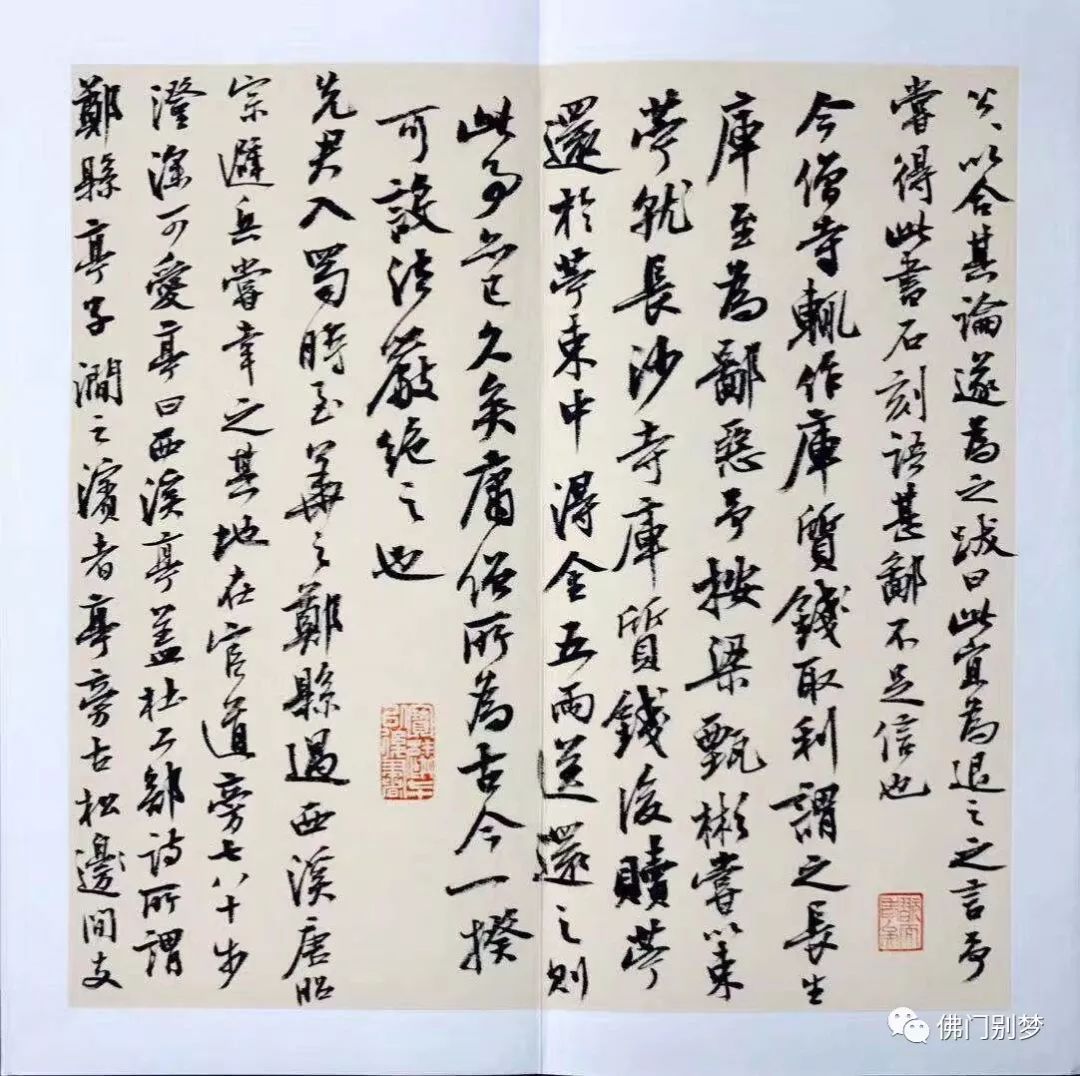 公以合其論遂為之跋曰此宜為退之之言予
嘗得此書石刻語甚鄙不足信也
今僧寺輒作庫質錢取利謂之長生
庫至為鄙惡予按梁甄彬嘗以束
苧就長沙寺庫質錢後贖苧
還於苧束中得金五兩送還之則
此事亦已久矣庸僧所為古今一揆
可設法嚴絕之也
先君入蜀時至華之鄭縣過西溪唐昭
宗避兵嘗幸之其地在官道旁七八十步
澄深可愛亭曰西溪亭蓋杜工部詩所謂
鄭縣亭子澗之濱者亭旁古松邊間支
佛门别梦